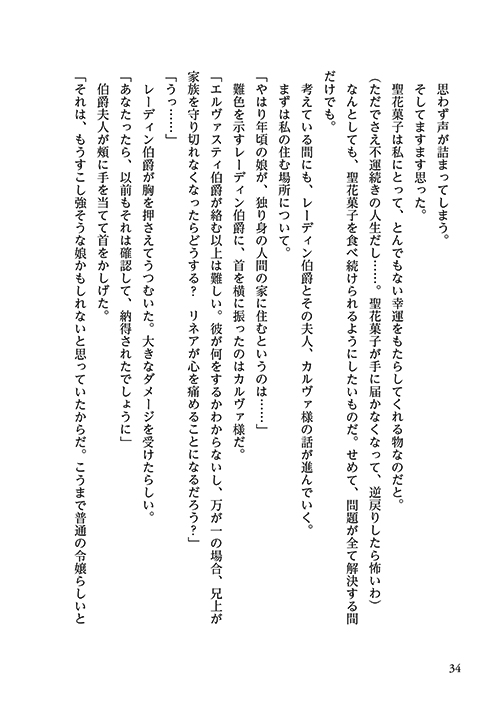 思わず声が詰まってしまう。
そしてますます思った。
聖花菓子は私にとって、とんでもない幸運をもたらしてくれる物なのだと。
(ただでさえ不運続きの人生だし……。聖花菓子が手に届かなくなって、逆戻りしたら怖いわ)
なんとしても、聖花菓子を食べ続けられるようにしたいものだ。せめて、問題が全て解決する間
だけでも。
考えている間にも、レーディン伯爵とその夫人、カルヴァ様の話が進んでいく。
まずは私の住む場所について。
「やはり年頃の娘が、独り身の人間の家に住むというのは……」
難色を示すレーディン伯爵に、首を横に振ったのはカルヴァ様だ。
「エルヴァスティ伯爵が絡む以上は難しい。彼が何をするかわからないし、万が一の場合、兄上が
家族を守り切れなくなったらどうする? リネアが心を痛めることになるだろう?」
「うっ……」
レーディン伯爵が胸を押さえてうつむいた。大きなダメージを受けたらしい。
「あなたったら、以前もそれは確認して、納得されたでしょうに」
伯爵夫人が頰に手を当てて首をかしげた。
「それは、もうすこし強そうな娘かもしれないと思っていたからだ。こうまで普通の令嬢らしいと
34